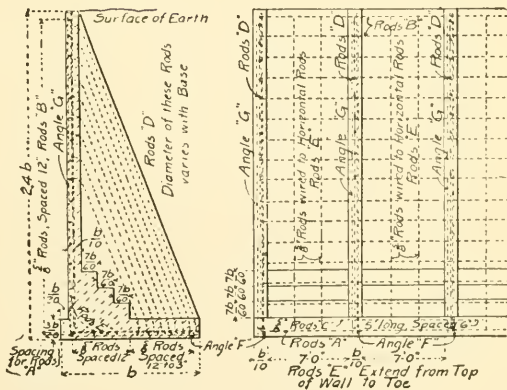 Surface of Earth
24 b
3/8" Rods Spaced 12", Rods "B"
Angle "G"
Rods "D"
Diameter of these Rods
varies with Base
b/10
7b/60
7b/60
7b/60
Spacing
for Rods
"A"
Rods
Spaced 12"
Rods
Spaced
12" to 3"
Angle "F"
b
Rods "D"
Rods "D"
Rods "B"
Angle "G"
Angle "G"
3/8" Rods wired to Horizontal Rods
Rods E
3/8" Rods wired to Horizontal Rods
Rods E
7b/60 7b/60 7b/60
Rods "C"
5' long, Spaced 6"
Rods "A"
Angle "F"
b/10
7'-0"
b/10
7'-0"
Rods "E" Extend from Top
of Wall to Toe